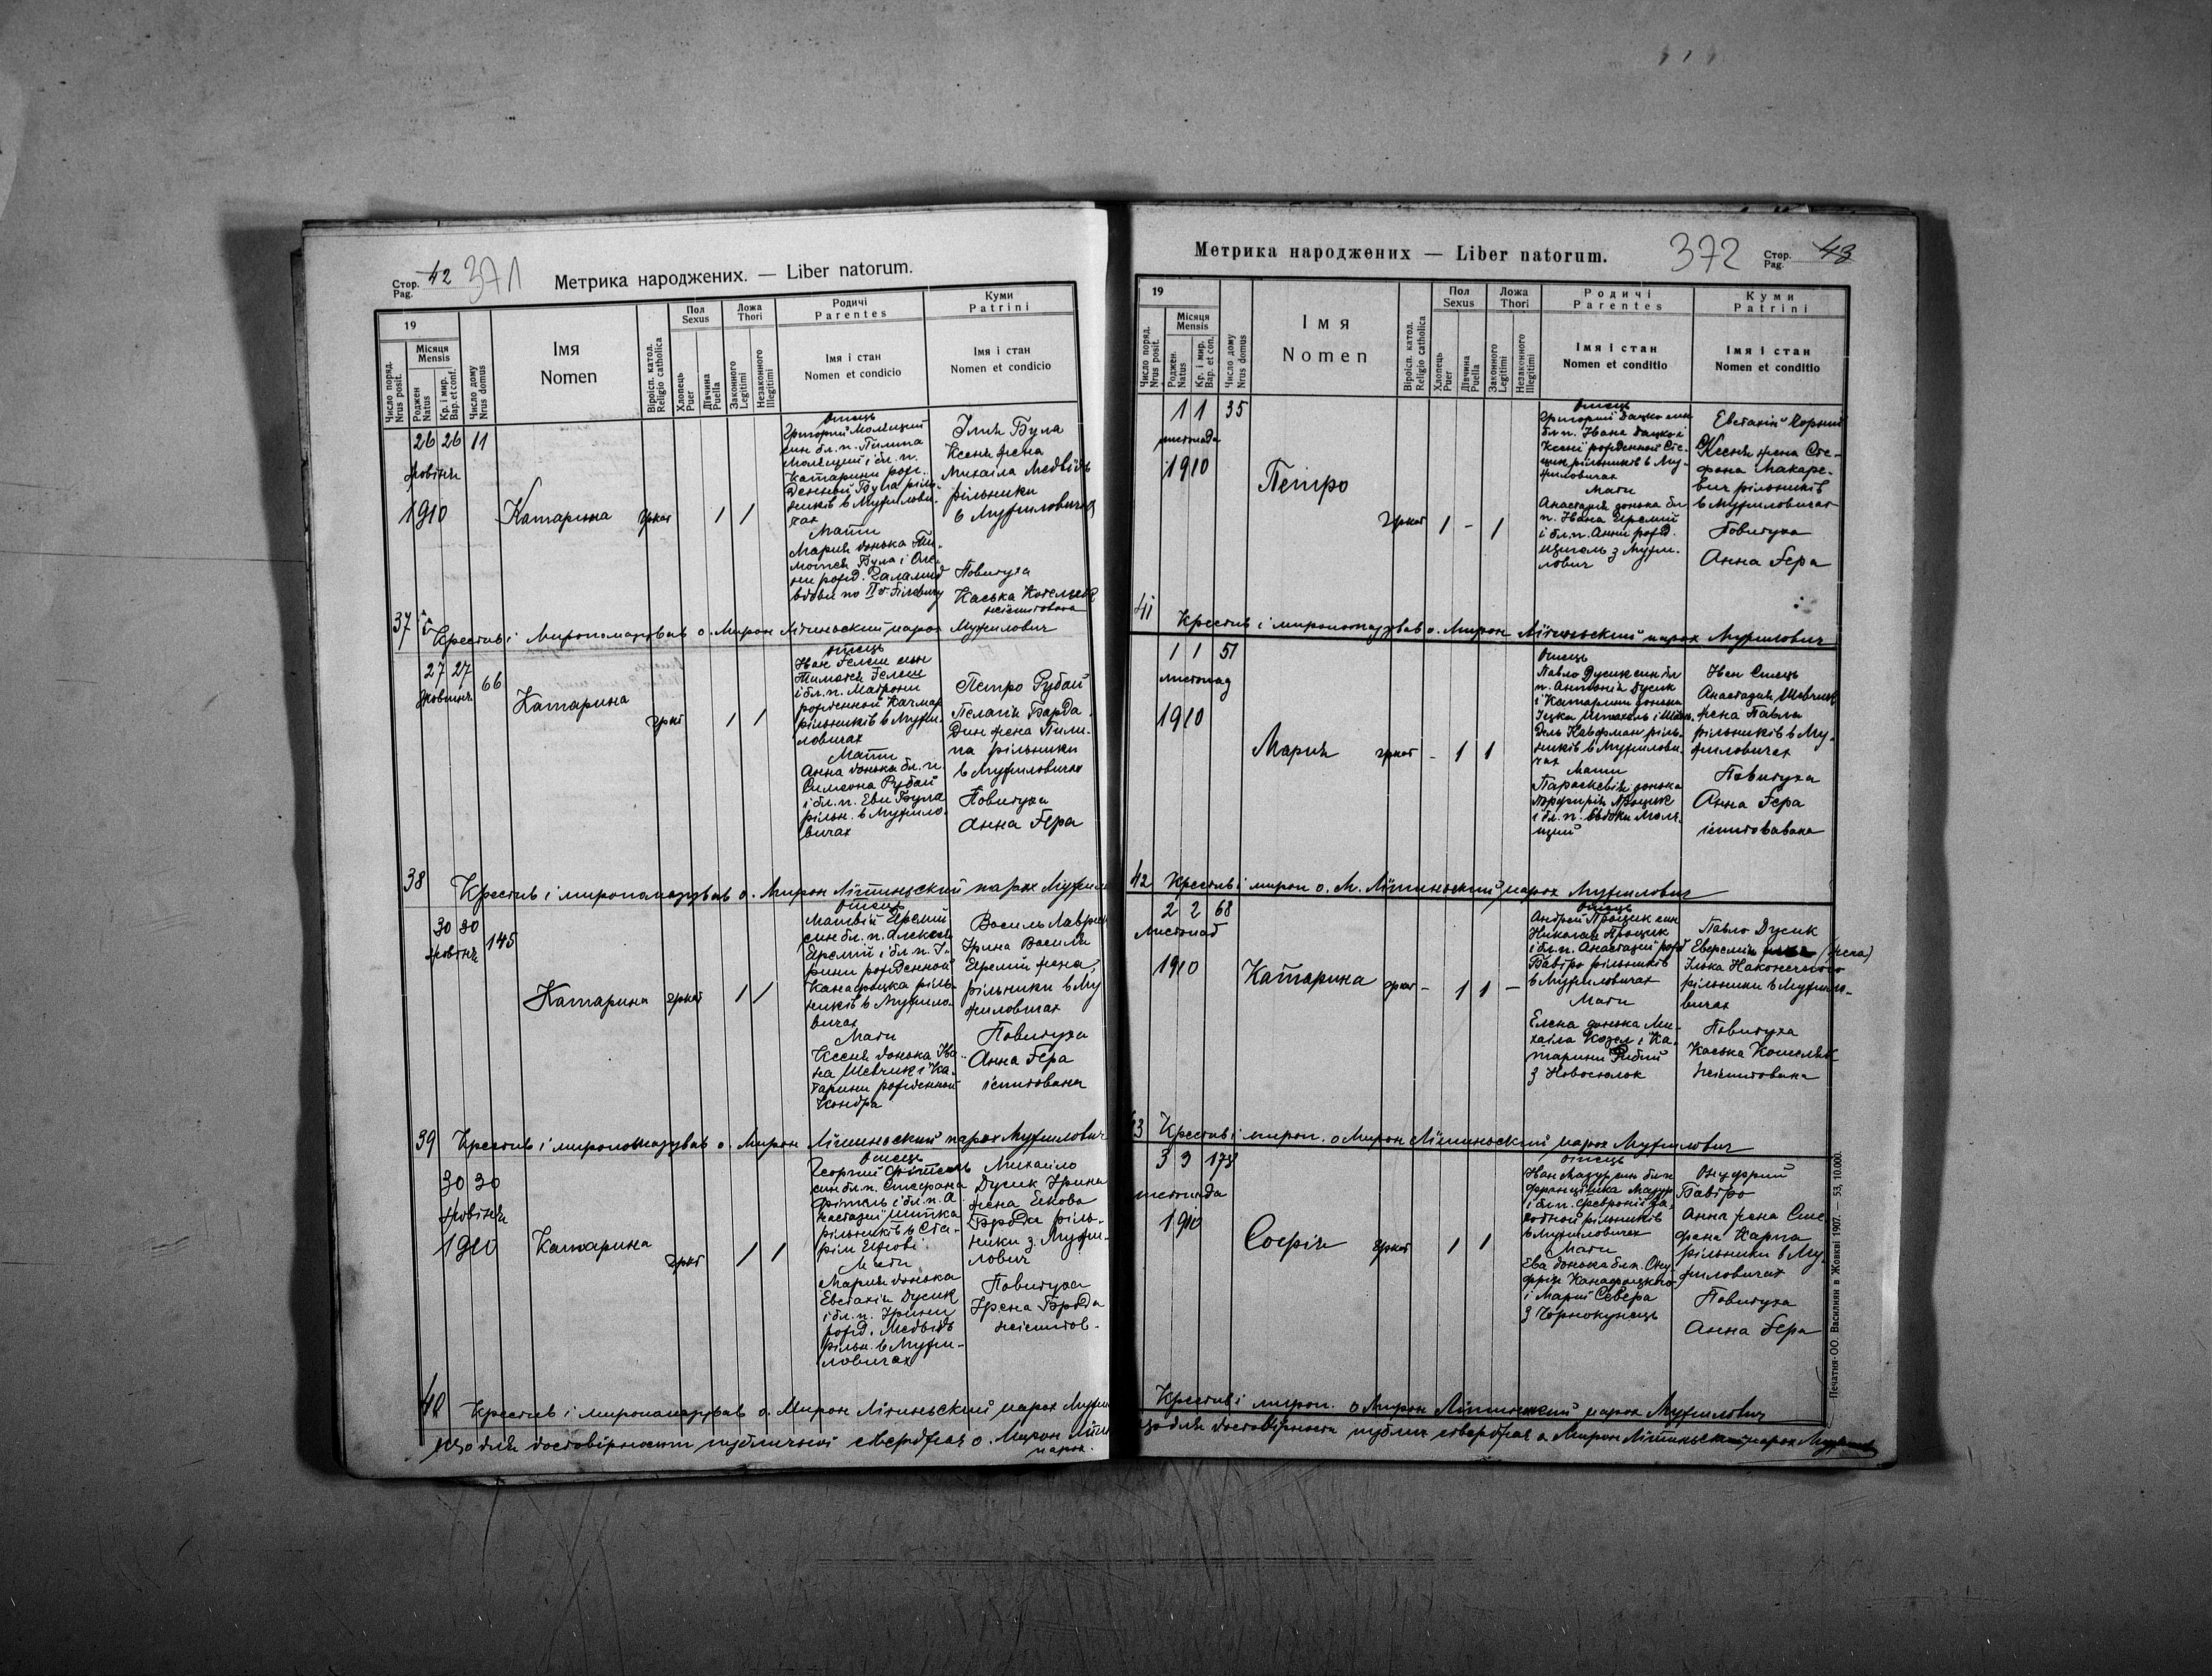 Стор. 42 371
Pag.
Метрика народжених. — Liber natorum.
19
Число поряд.
Nrus posit.
Місяця
Mensis
Роджен
Natus
Кр. і мир.
Bap. et conf.
Число дому
Nrus domus
Імя
Nomen
Віроісп. катол.
Religio catholica
Пол
Sexus
Хлопець
Puer
Дівчина
Puella
Ложа
Thori
Законного
Legitimi
Незаконного
Illegitimi
Родичі
Parentes
Імя і стан
Nomen et condicio
Куми
Patrini
Імя і стан
Nomen et condicio
26 26 11
Жовтня
1910
Катарина
гркат
1 1
Отець
Григорий Молецкий
син бл. п. Пилипа
Молецкий і бл. п.
Катарини рож-
денной Була ріль-
ників в Мужилови-
чах
Мати
Мария донька Ти-
мотея Була і Оле-
ни рожд.
вдови по
Ілия Була
Ксеня жена
Михаіла Медвідь
рільники
в Мужиловичах
Повитуха
Каська
неіспитована
37
Крестив і миропомазував о. Мирон Літиньский парох Мужилович
27 27 66
Жовтня
Катарина
гркат
1 1
Отець
Иван Гелеш син
Тимотея Гелеш
і бл. п. Матрони
рожденной Качмар
рільників в Мужи-
ловичах
Мати
Анна донька бл. п.
Симеона Рубай
і бл. п. Еви Була
рільн. в Мужило-
вичах
Петро Рубай
Пелагія Барда
жена Пили-
па рільники
в Мужиловичах
Повитуха
Анна Гера
38
Крестив і миропомазував о. Мирон Літиньский парох
30 30 145
Жовтня
Катарина
гркат
1 1
Отець
Матвій Яремий
син бл. п. Алексея
Яремий і бл. п. І-
рини рожденной
Канафоцка ріль-
ників в Мужило-
вичах
Мати
Ксеня донька Ива-
на Шевчик і Ка-
тарини рожденной
Кондра
Василь
Ірина Василя
Яремий жена,
рільники в Му
жиловичах
Повитуха
Анна Гера
іспитована
39
Крестив і миропомазував о. Мирон Літиньский парох Мужилович
30 30
Жовтня
1910
Катарина
гркат
1 1
Отець
Георгий Фітель
син бл. п. Стефана
Фітель і бл. п. А-
настазиї Шитка
рільників в Ста-
рім Яжові
Мати
Мария донька
Евстахія Дусик
і бл. п. Ірини
рожд. Медвідь
рільн. в Мужи-
ловичах
Михайло
Дусик Ірина
жена Якова
Брода ріль-
ники з Мужи-
лович
Повитуха
Ірена Брода
неіспитов.
40
Крестив і миропомазував о. Мирон Літиньский парох
що для достовірности публичної стверджає о. Мирон
парох.
Метрика народжених — Liber natorum.
372
Стор. 43
Pag.
19
Число поряд.
Nrus posit.
Місяця
Mensis
Роджен.
Natus
Кр. і мир.
Bap. et con.
Число дому
Nrus domus
Імя
Nomen
Віроісп. катол.
Religio catholica
Пол
Sexus
Хлопець
Puer
Дівчина
Puella
Ложа
Thori
Законного
Legitimi
Незаконного
Illegitimi
Родичі
Parentes
Імя і стан
Nomen et conditio
Куми
Patrini
Імя і стан
Nomen et conditio
1 1 35
листопада
1910
Петро
гркат
1 - 1
Отець
Григорий Дацко син
бл. п. Ивана Дацко і
Ксенї рожденной Сте-
цик рільників в Му-
жиловичах
Мати
Анастазия донька бл
п. Ивана Яремий
і бл. п. Анни рожд.
з Мужи-
лович
Евстахій Чорний
Ксеня жена Сте-
фана Макаре-
вич рільників
в Мужиловичах
Повитуха
Анна Гера
41
Крестив і миропомазував о. Мирон Літиньский парох Мужилович
1 1 51
листопад
1910
Мария
гркат
- 1 1
Отець
Павло Дусик син бл
п. Антонія Дусик
і Катарини донька
Іцка
Кавфман ріль-
ників в Мужилови-
чах
Мати
Параскевія донька
Порфирія Процик
і бл. п. Евдокії Моле-
цкий
Иван Стець
Анастазия Шевчик
жена Павла
рільників в Му-
жиловичах
Повитуха
Анна Гера
іспитована
42
Крестив і мироп о. М. Літиньский парох Мужилович
2 2 68
Листопад
1910
Катарина
гркат
- 1 1 -
Отець
Андрей Процик син
Николая Процик
і бл. п. Анастазиї рожд
Бавтро рільників
в Мужиловичах
Мати
Елена донька Ми-
хаіла Козел і Ка-
тарини Рибий
з Новосюлок
Павло Дусик
Евфемія (жена)
Ілька Наконечного
рільники в Мужило-
вичах
Повитуха
Каська
неіспитована
43
Крестив і мироп. о Мирон Літиньский парох Мужилович
3 3 173
листопада
1910
Софія
гркат
1 1
Отець
Иван Мазур син бл п
Францішка Мазур
і бл п. Февронії
рільників
в Мужиловичах
Мати
Ева донька бл п. Ону-
фрия Канафоцкого
і Марії Севера
з Чорнокунець
Онуфрий
Бавтро
Анна жена Сте
фана Карпа
рільники в Му
жиловичах
Повитуха
Анна Гера
Крестив і мироп. о Мирон Літиньский парох Мужилович
що для достовірности публич стверджає о Мирон Літиньский парох
Печатня ОО. Василиян в Жовкві 1907. — 53, 10.000.